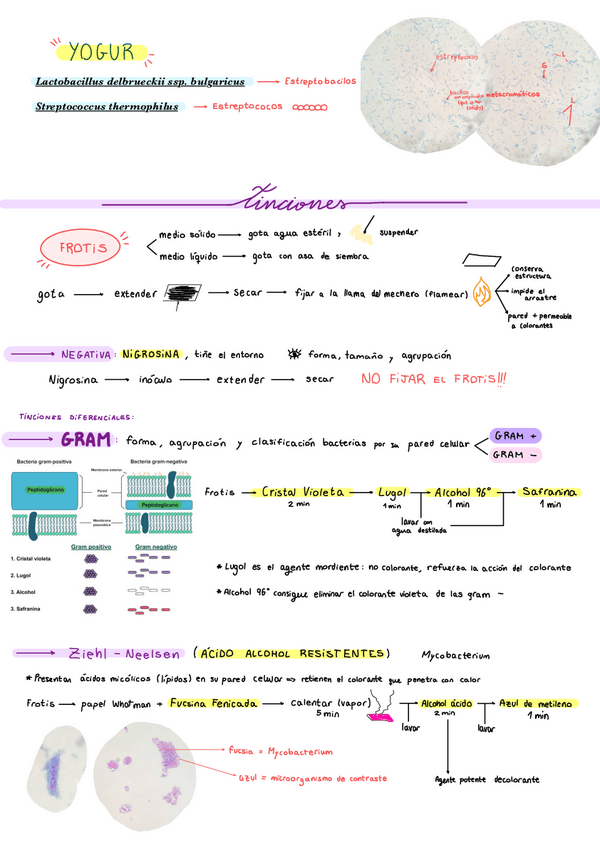 YOGUR
Lactobacillus delbrueckii ssp. bulgaricus → Estreptobacilos
Streptococcus thermophilus → Estreptococos
estreptococos
metacromáticos
L
E
L
Tinciones
FROTIS
medio sólido → gota agua estéril y suspender
medio líquido → gota con asa de siembra
gota → extender → secar → fijar a la llama del mechero (flamear)
conserva estructura
impide el arrastre
pared + permeable a colorantes
→ NEGATIVA: NIGROSINA, tiñe el entorno forma, tamaño y agrupación
Nigrosina → inóculo → extender → secar NO FIJAR EL FROTIS!!!
TINCIONES DIFERENCIALES:
→ GRAM: forma, agrupación y clasificación bacterias por su pared celular
GRAM +
GRAM −
Bacteria gram-positiva
Bacteria gram-negativa
Membrana exterior
Peptidoglicano
Pared celular
Peptidoglicano
Membrana plasmática
Gram positivo
Gram negativo
1. Cristal violeta
2. Lugol
3. Alcohol
3. Safranina
Frotis → Cristal Violeta → Lugol → Alcohol 96° → Safranina
2 min 1 min 1 min 1 min
lavar con agua destilada
* Lugol es el agente mordiente: no colorante, refuerza la acción del colorante
* Alcohol 96° consigue eliminar el colorante violeta de las gram −
→ Ziehl-Neelsen (ÁCIDO ALCOHOL RESISTENTES) Mycobacterium
* Presentan ácidos micólicos (lípidos) en su pared celular => retienen el colorante que penetra con calor
Frotis → papel Whatman + Fucsina Fenicada → calentar (vapor) → Alcohol ácido → Azul de metileno
5 min 2 min 1 min
lavar
lavar
fucsia = Mycobacterium
azul = microorganismo de contraste
Agente potente decolorante